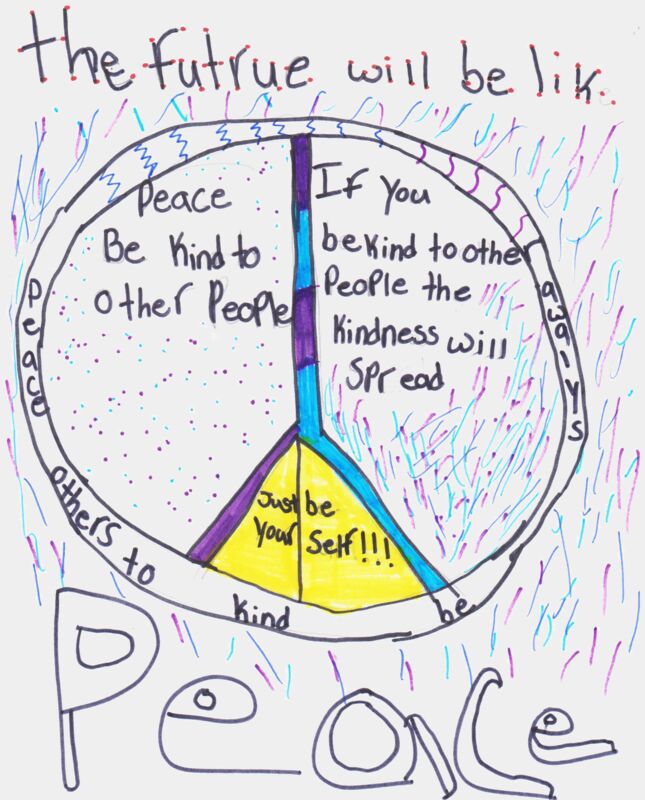 the futrue will be lik
Peace
Be kind to
other People
If you
be kind to other
People the
kindness will
spread
Just be
your self!!!
awalys
be
kind
others to
peace
Peace